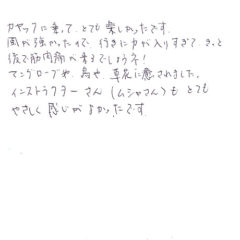 カヤックに乗って、とても楽しかったです。
風が強かったので、行きに力が入りすぎて、きっと
後で筋肉痛が来るでしょうネ!
マングローブや、鳥や、草花に癒されました。
インストラクターさん(ムシャさん)も とても
やさしく 感じが よかったです。